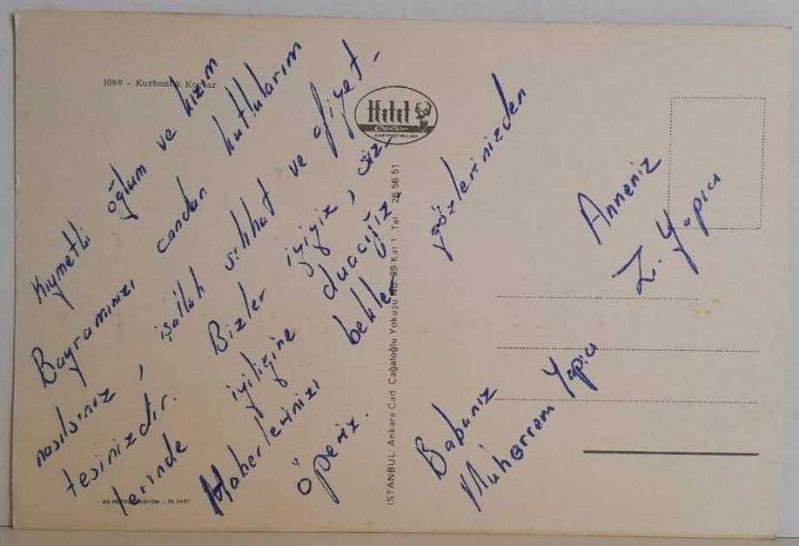 1080 - Kurbanlık Koçlar
Hilal
KARTPOSTALLARI
Kıymetli oğlum ve kızım
Bayramınızı candan kutlularım
nasılsınız, işallah sıhhat ve afiyet-
tesinizdir. Bizler iyiyiz, siz-
lerinde iyiliğine duacıyız.
Haberlerinizi bekler gözlerinizden
öperiz.
Anneniz
Z. Yapıcı
Babanız
Muharrem Yapıcı
İSTANBUL: Ankara Cad. Cağaloğlu Yokuşu No: 39 Kat 1 Tel: 26 56 51